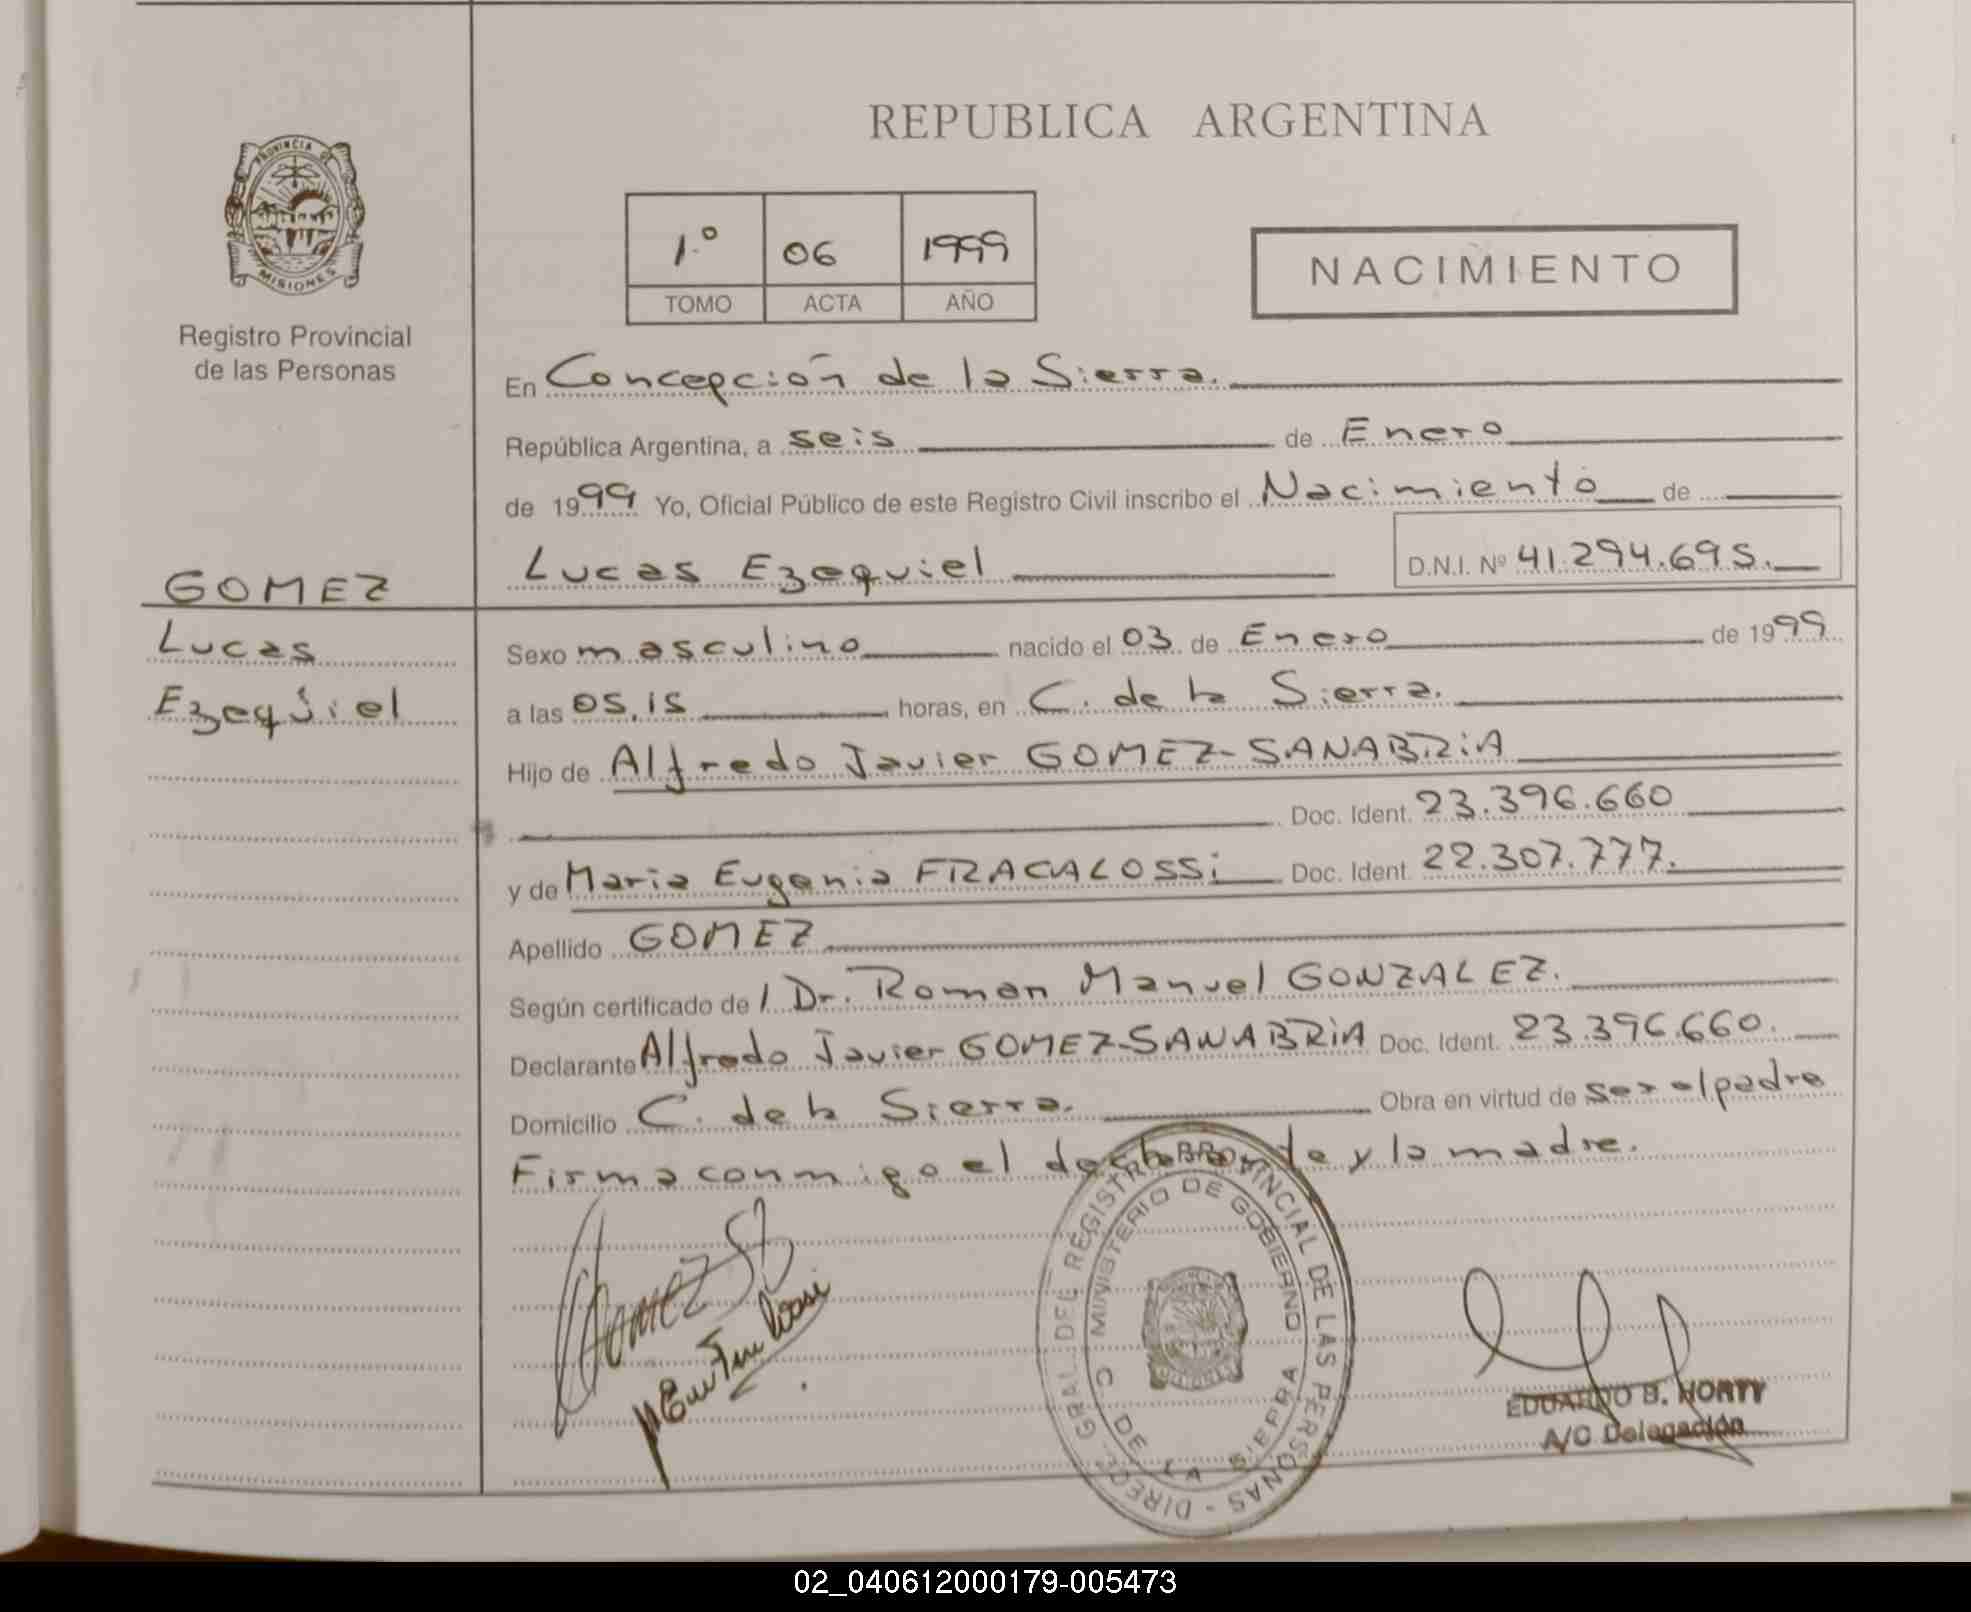 REPUBLICA ARGENTINA
PROVINCIA DE
MISIONES
Registro Provincial
de las Personas
1.º 06 1999
TOMO ACTA AÑO
NACIMIENTO
En Concepción de la Sierra.
República Argentina, a seis de Enero
de 1999 Yo, Oficial Público de este Registro Civil inscribo el Nacimiento de
Lucas Ezequiel D.N.I. Nº 41.294.695.
GOMEZ
Lucas
Ezequiel
Sexo masculino nacido el 03 de Enero de 1999
a las 05,15 horas, en C. de la Sierra.
Hijo de Alfredo Javier GOMEZ-SANABRiA
Doc. Ident. 23.396.660
y de Maria Eugenia FRACALOSSi Doc. Ident. 22.307.777.
Apellido GOMEZ
Según certificado de / Dr. Roman Manuel GONZALEZ.
Declarante Alfredo Javier GOMEZ-SANABRiA Doc. Ident. 23.396.660.
Domicilio C. de la Sierra. Obra en virtud de ser el padre
Firma conmigo el declarante y la madre.
Gomez S
DIRECC. GRAL. DEL REGISTRO PROVINCIAL DE LAS PERSONAS -
MINISTERIO DE GOBIERNO
C. DE LA SIERRA
EDUARDO B. NORTY
A/C Delegación
02_040612000179-005473